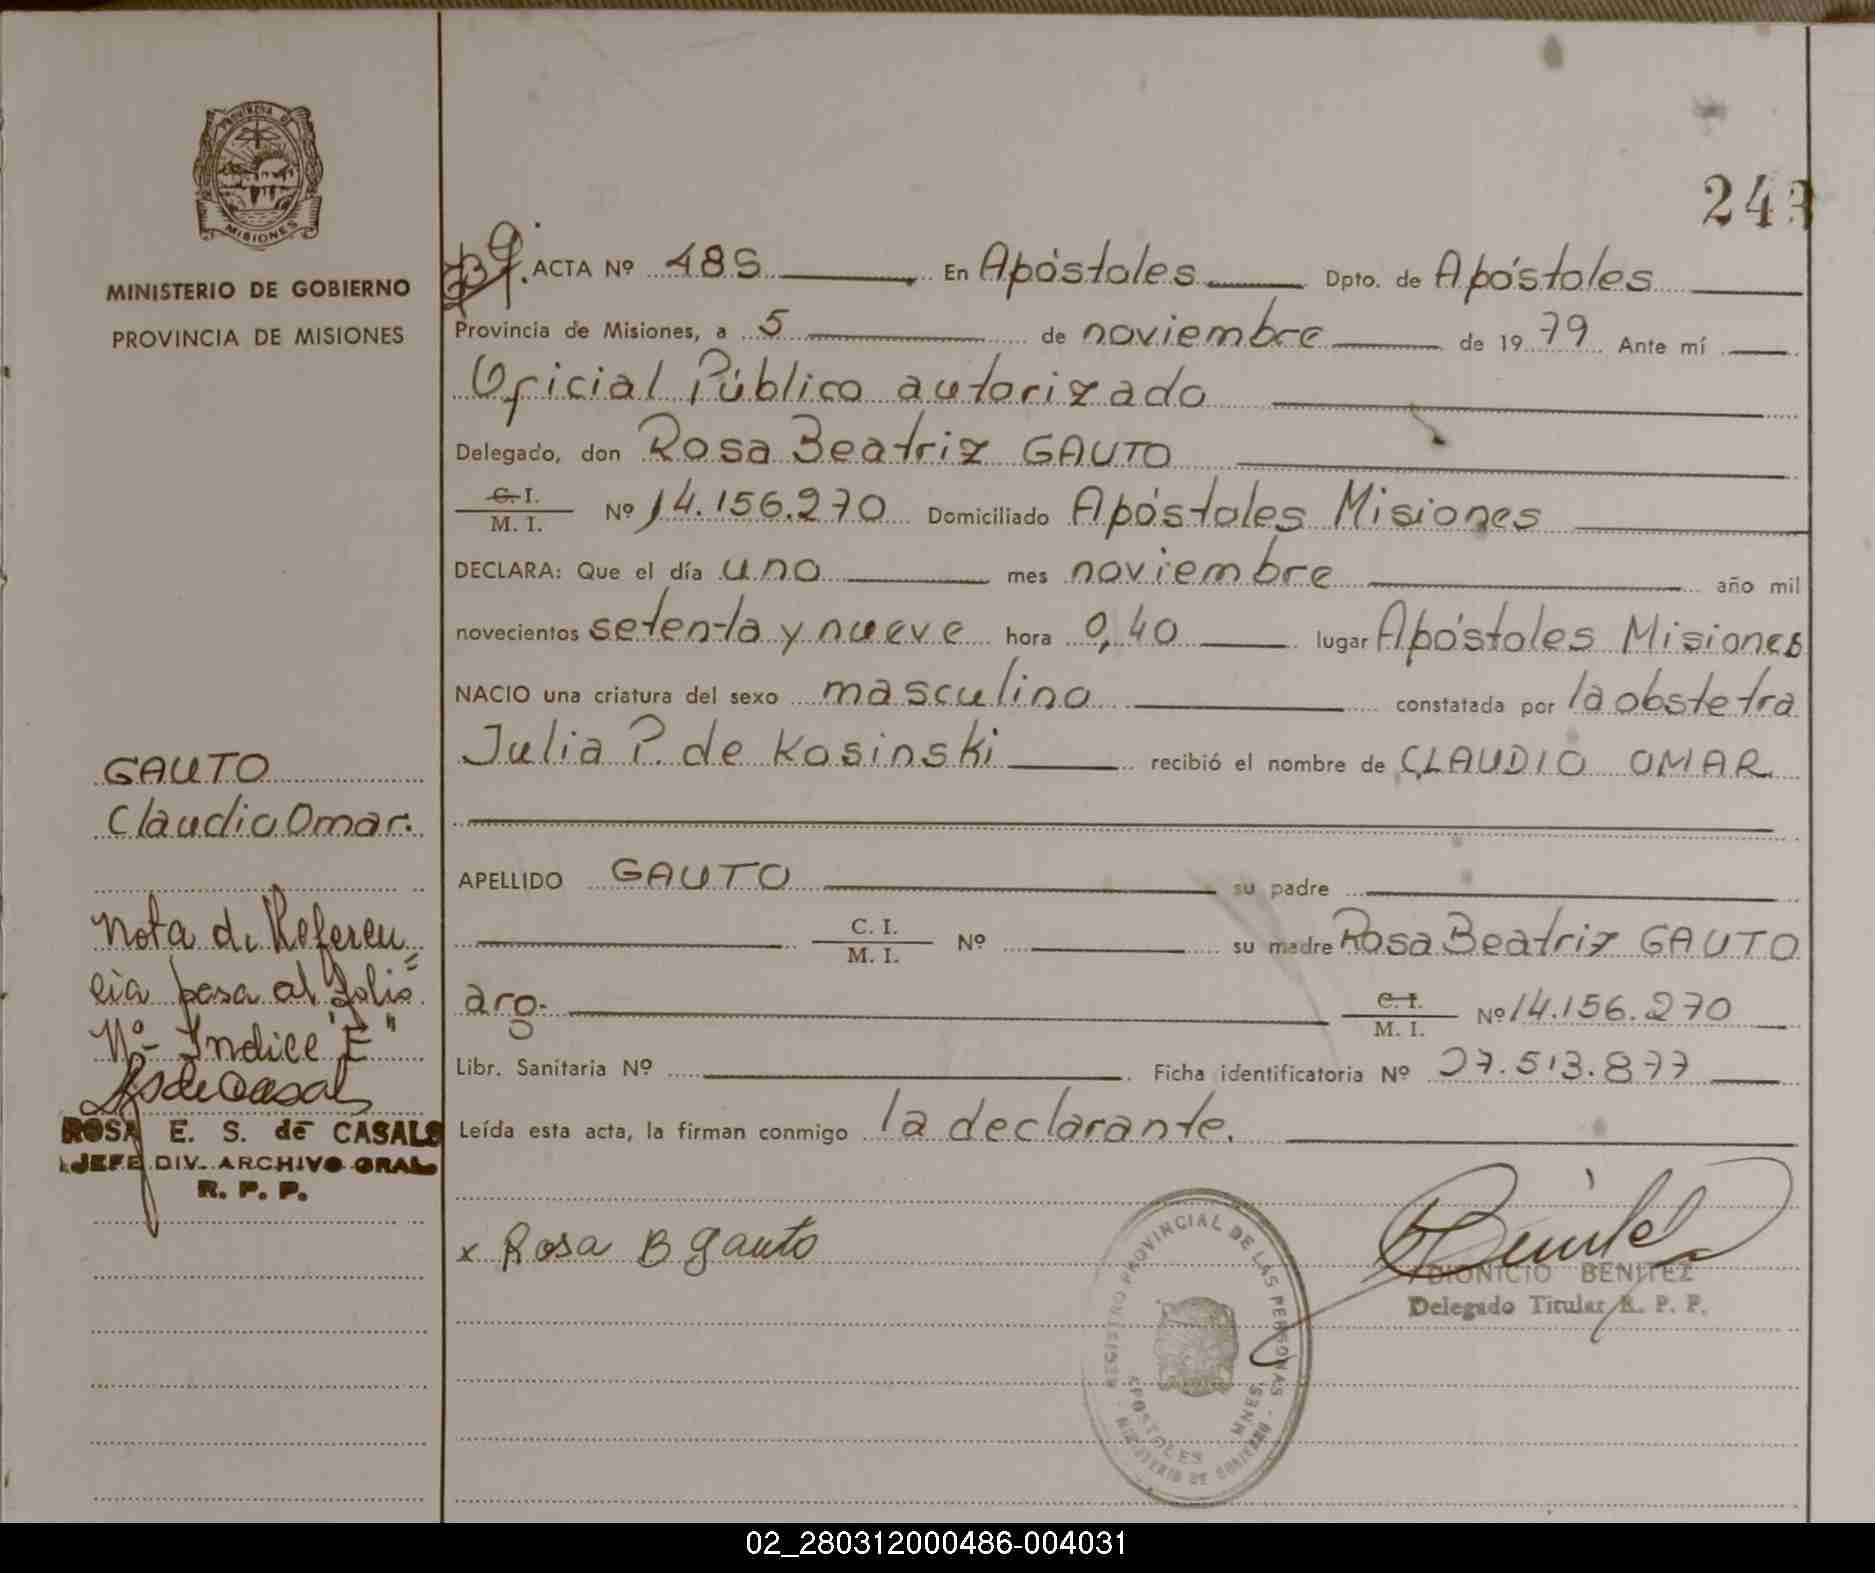 PROVINCIA DE
MISIONES
MINISTERIO DE GOBIERNO
PROVINCIA DE MISIONES
GAUTO
Claudio Omar.
Nota de Referen=
cia pasa al folio
Nº- Indice "E"
ROSA E. S. de CASALS
JEFE DIV. ARCHIVO GRAL
R. P. P.
243
ACTA Nº 485 En Apóstoles Dpto. de Apóstoles
Provincia de Misiones, a 5 de noviembre de 1979 Ante mí
Oficial Público autorizado
Delegado, don Rosa Beatriz GAUTO
C. I.
M. I. Nº 14.156.270 Domiciliado Apóstoles Misiones
DECLARA: Que el día uno mes noviembre año mil
novecientos setenta y nueve hora 0,40 lugar Apóstoles Misiones
NACIO una criatura del sexo masculino constatada por la obstetra
Julia P. de Kosinski recibió el nombre de CLAUDIO OMAR
APELLIDO GAUTO su padre
C. I.
M. I. Nº su madre Rosa Beatriz GAUTO
arg. C. I.
M. I. Nº 14.156.270
Libr. Sanitaria Nº Ficha identificatoria Nº 27.513.877
Leída esta acta, la firman conmigo la declarante.
x Rosa B Gauto
REGISTRO PROVINCIAL DE LAS PERSONAS
APOSTOLES MNES.
MINISTERIO DE GOBIERNO
DIONICIO BENITEZ
Delegado Titular R. P. P.
02_280312000486-004031